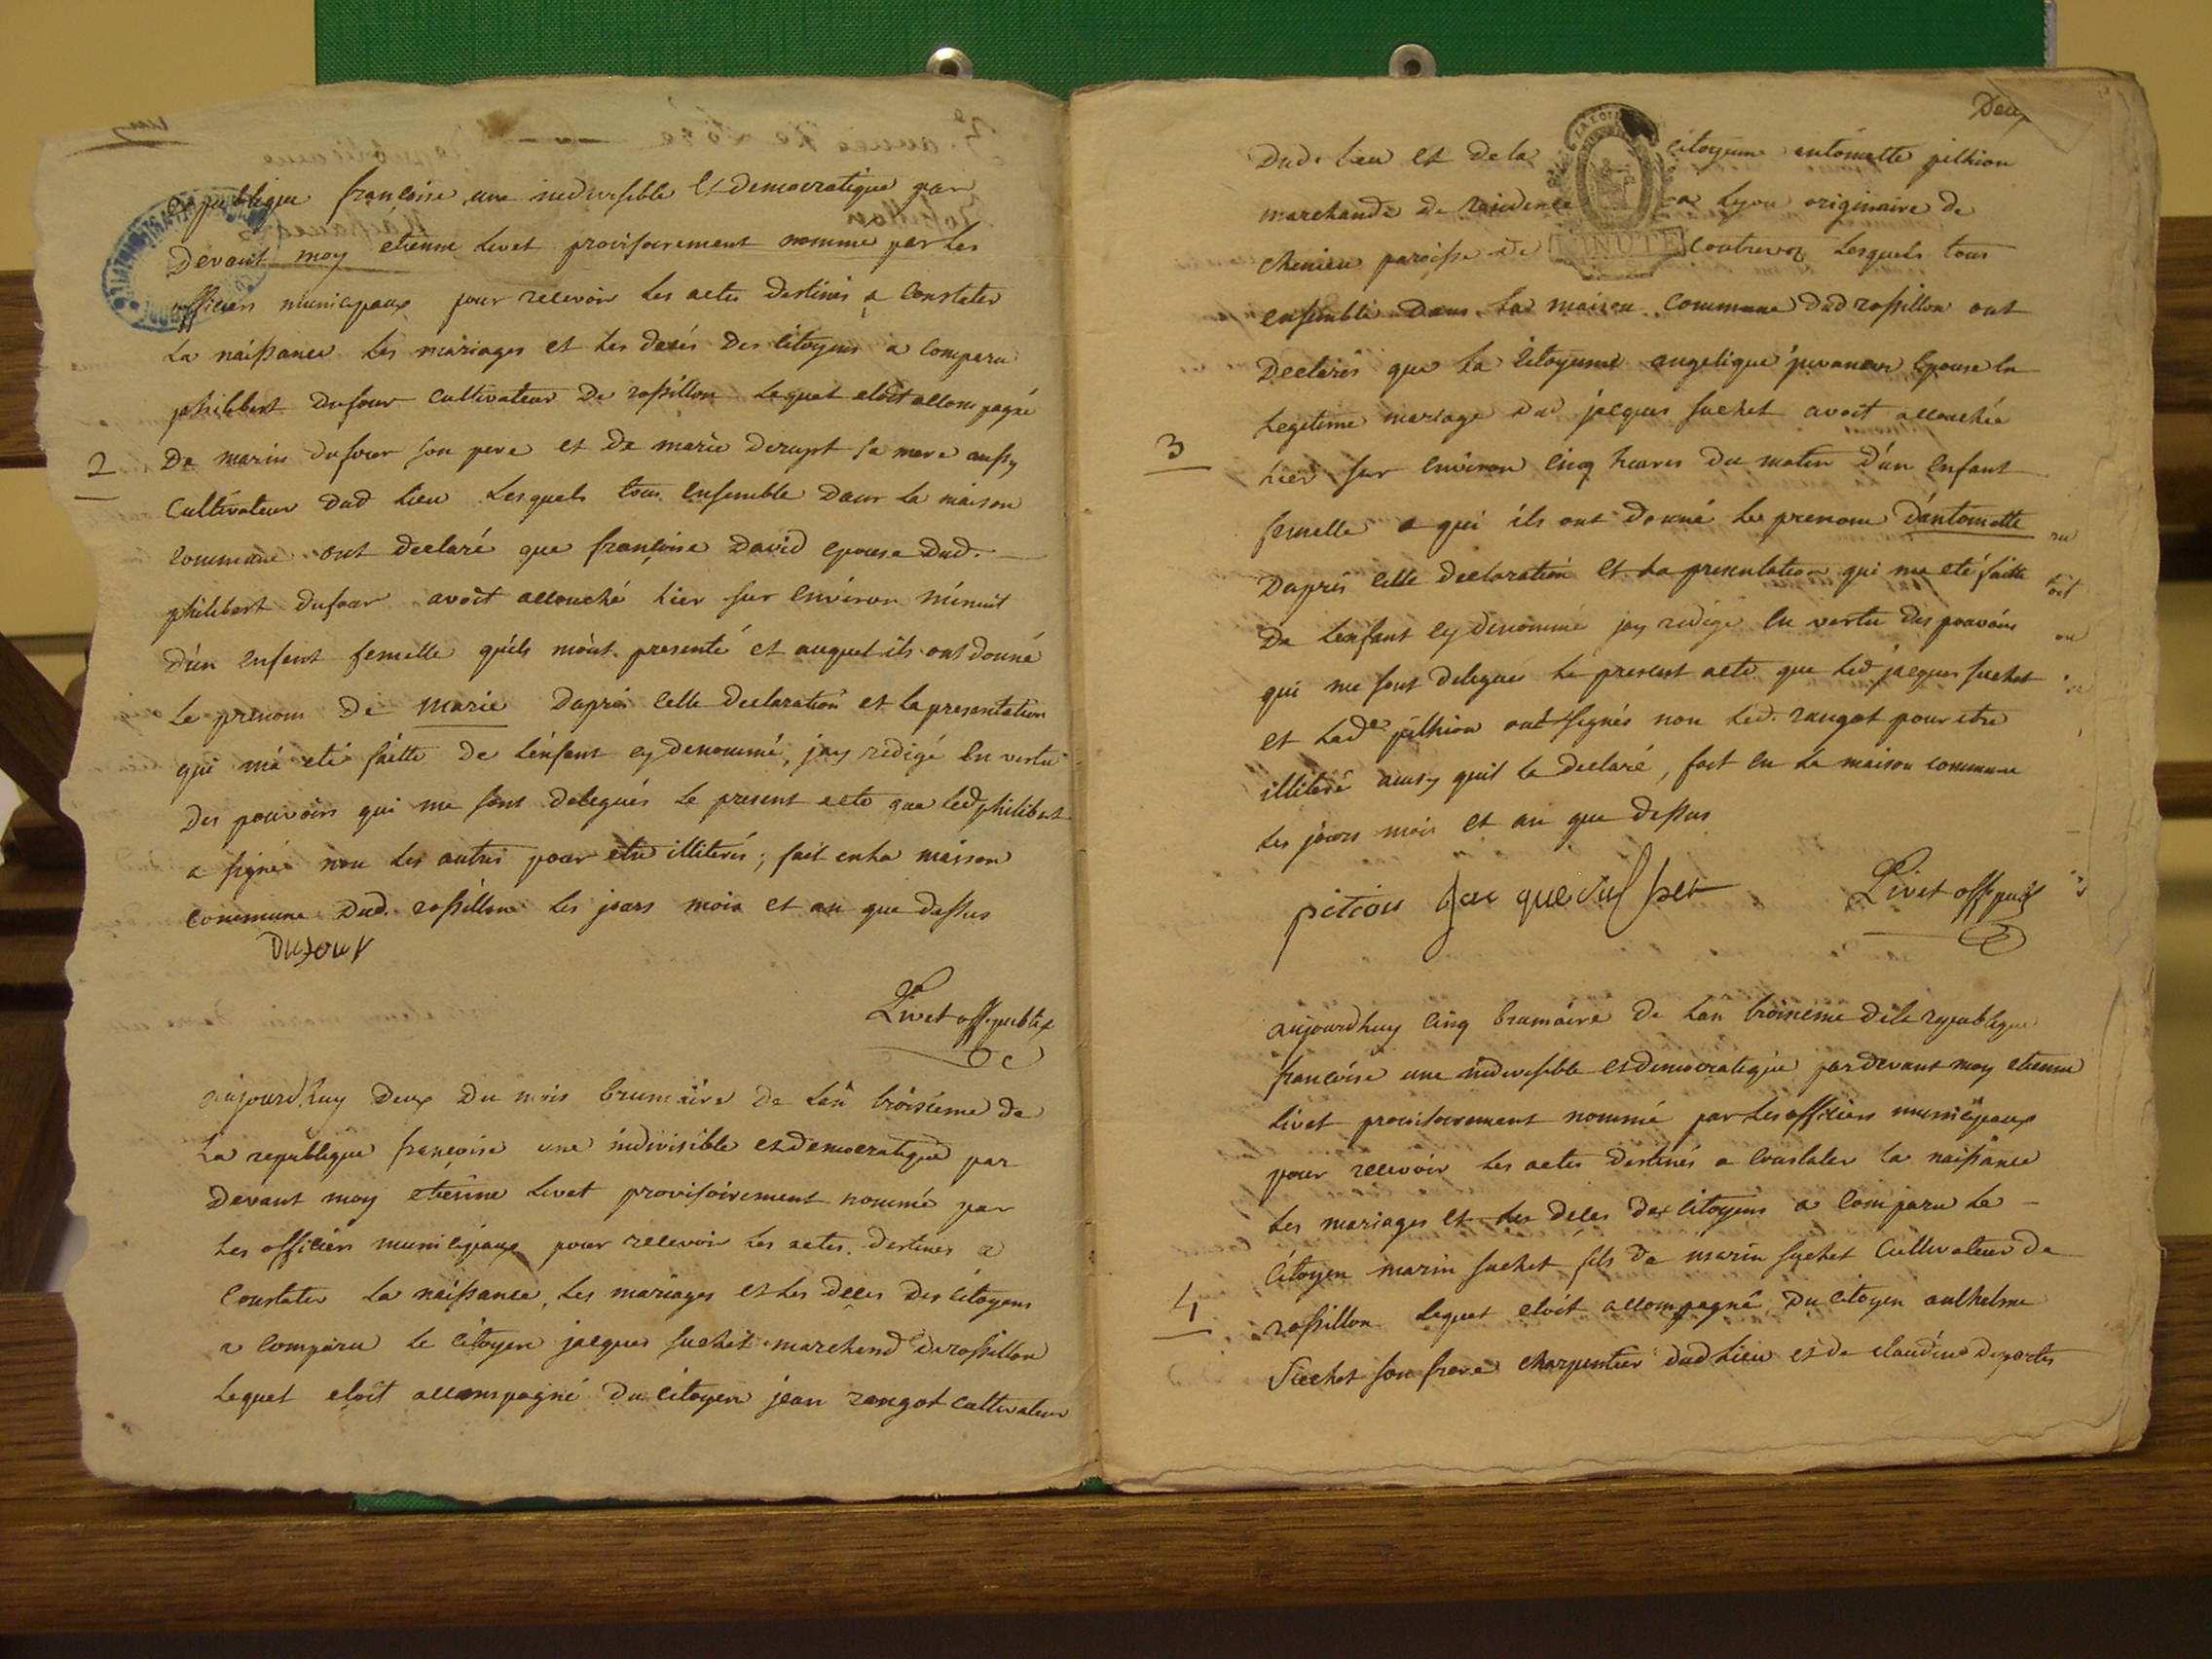 republique françoise une indivisible et democratique par
Devant moy etienne Livet provisoirement nomme par les
officiers municipaux pour recevoir les actes destinés a constater
la naissance les mariages et les decés des citoyens a comparu
philibert dufour cultivateur de rossillon lequel etoit accompagné
2
de marin dufour son pere et de marie derupt sa mere aussy
cultivateur dud lieu lesquels tous ensemble dans la maison
commune ont declaré que françoise david epouse dud.
philibert dufour avoit accouché hier sur environ minuit
d'un enfant femelle qu'ils m'ont presenté et auquel ils ont donné
le prenom de marie Dapres celle declaration et la presentation
qui m'a eté faitte de l'enfant cy denommé, jay redigé en vertu
des pouvoirs qui me sont delegués le present acte que led philibert
a signé non les autres pour etre illiterés; fait en la maison
commune dud. rossillon les jours mois et an que dessus
Dufour
Livet off. public
aujourd'huy deux du mois brumaire de l'an troisieme de
la republique françoise une indivisible et democratique par
devant moy etienne Livet provisoirement nommé par
les officiers municipaux pour recevoir les actes destines a
constater la naissance, les mariages et les deces des citoyens
a comparu le citoyen jacques suchet marchend de rossillon
lequel etoit accompagné du citoyen jean rangot cultivateur
Deux
Dud. lieu et de la citoyenne antoinette
marchande de residence a lyon originaire de
paroisse de MINUTE lesquels tous
ensemble dans la maison commune dud rossillon ont
declarés que la citoyenne angelique epouse en
legitime mariage dud jacques suchet avoit accouchée
3
hier sur environ cinq heures du matin d'un enfant
femelle a qui ils ont donné le prenom d'antoinette
Dapres celle declaration et la presentation qui ma eté faitte
de l'enfant cy denommé jay redigé en vertu des pouvoirs
qui me sont delegués le present acte que led jacques suchet
et lade ont signés non led. rangot pour etre
illiteré ainsy quil la declaré, fait en la maison commune
les jours mois et an que dessus
pition Jacque Suchet Livet off pub
aujourdhuy cinq brumaire de l'an troisieme de la republique
françoise une indivisible et democratique pardevant moy etienne
livet provisoirement nommé par les officiers municipaux
pour recevoir les actes destinés a constater la naissance
les mariages et les deces des citoyens a comparu le
citoyen marin suchet fils de marin suchet cultivateur de
4
rossillon lequel etoit accompagné du citoyen anthelme
Suchet son frere charpentier dud lieu et de claudine deportes